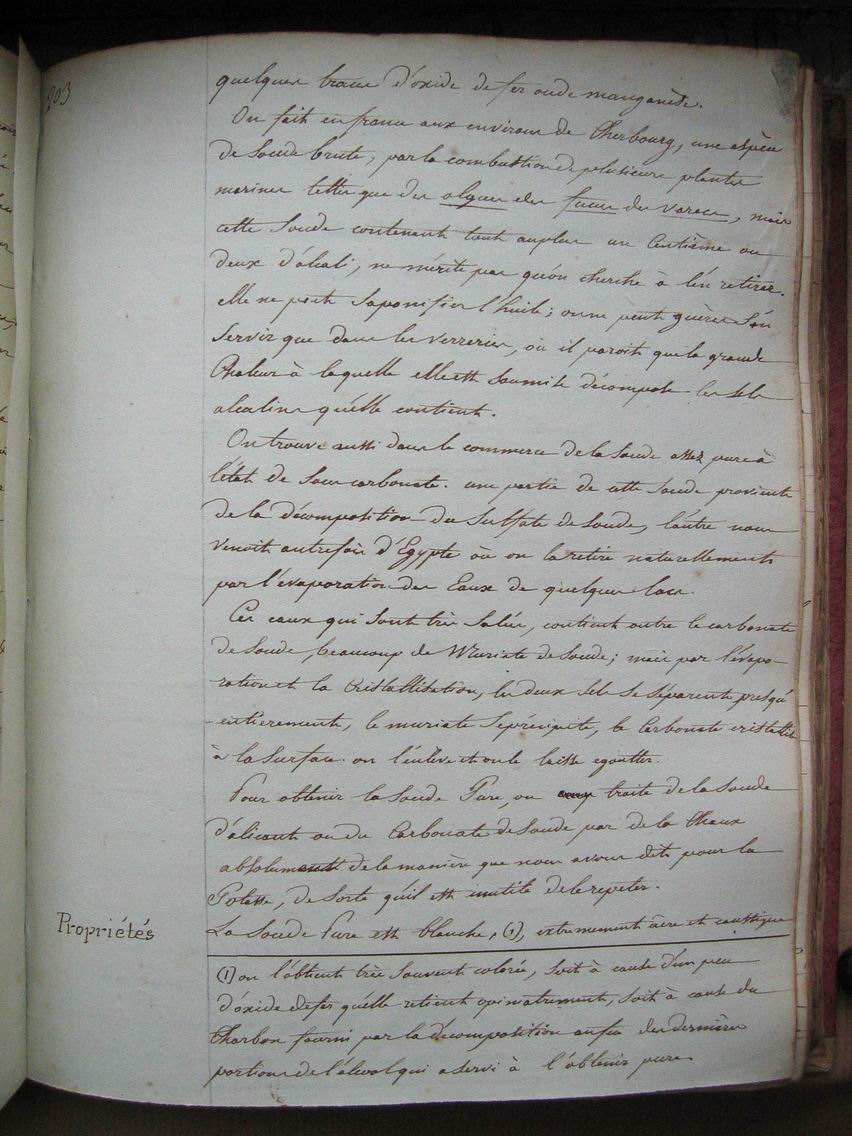 203
quelques traces d'oxide de fer ou de manganèse.
On fait en france aux environs de Cherbourg, une espèce
de Soude brute, par la combustion de plusieurs plantes
marines telles que des algues des fucus des varecs, mais
cette Soude contenant tout au plus un Centième ou
deux d'alcali, ne mérite pas qu'on cherche à l'en retirer.
elle ne peut Saponifier l'huile; on ne peut guères S'en
Servir que dans les verreries, où il paroit que la grande
Chaleur à laquelle elle est Soumise décompose les sels
alcalins qu'elle contient.
On trouve aussi dans le commerce de la Soude assez pure à
l'état de Sous carbonate. une partie de cette Soude provient
de la décomposition du Sulfate de Soude, l'autre nous
venoit autrefois d'Egypte où on la retire naturellement
par l'évaporation des Eaux de quelques lacs.
Ces eaux qui Sont très Salées, contient outre le carbonate
de Soude, beaucoup de Muriate de Soude; mais par l'évapo-
ration et la Cristallisation, les deux Sels Se Séparent presqu'
-entièrement, le muriate Se précipite, le Carbonate cristallise
à la Surface. on l'enlève et on le laisse egoutter.
Pour obtenir la Soude Pure, on traite de la Soude
d'alicante ou du Carbonate de Soude par de la Chaux
absolument de la manière que nous avons dit pour la
Potasse, de Sorte qu'il est inutile de le repeter.
Propriétés
La Soude Pure est blanche, (1), extremement âcre et caustique
(1) on l'obtient très Souvent colorée, Soit à cause d'un peu
d'oxide de fer qu'elle retient opiniatrement, Soit à cause du
Charbon fourni par la décomposition au feu des dernières
portions de l'alcool qui a servi à l'obtenir pure